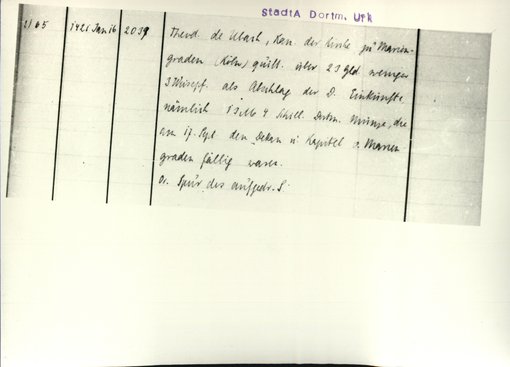 StadtA Dortm. Urk
2) 65 1421 Jan 16 2039
Theod. de Ubach, Kan. der Kirche zu Marien-
graden (Köln) quitt. über 23 Gld. weniger
3 als Abschlag der D. Einkünfte,
nämlich 13 4 Schill. Dortm. Münze, die
am 17. Sept. den Dekan u Kapitel v. Marien-
graden fällig waren.
Or. Spur des aufgedr. S.